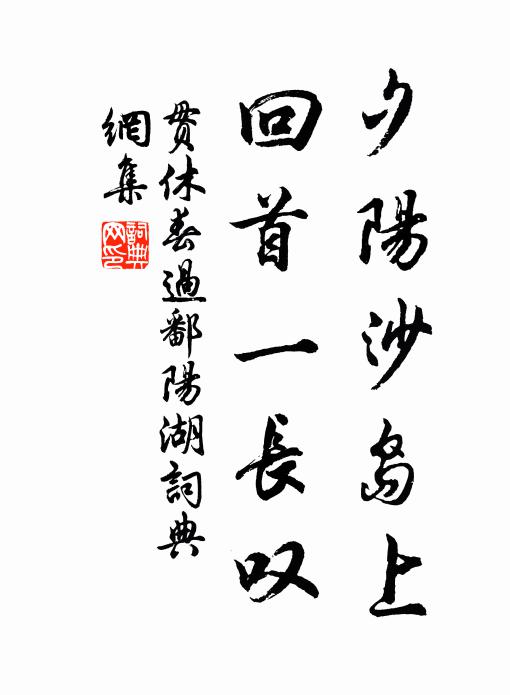 夕陽沙島上
回首一長叹
貫休春過鄱陽湖詞典
網集
詞典
网印